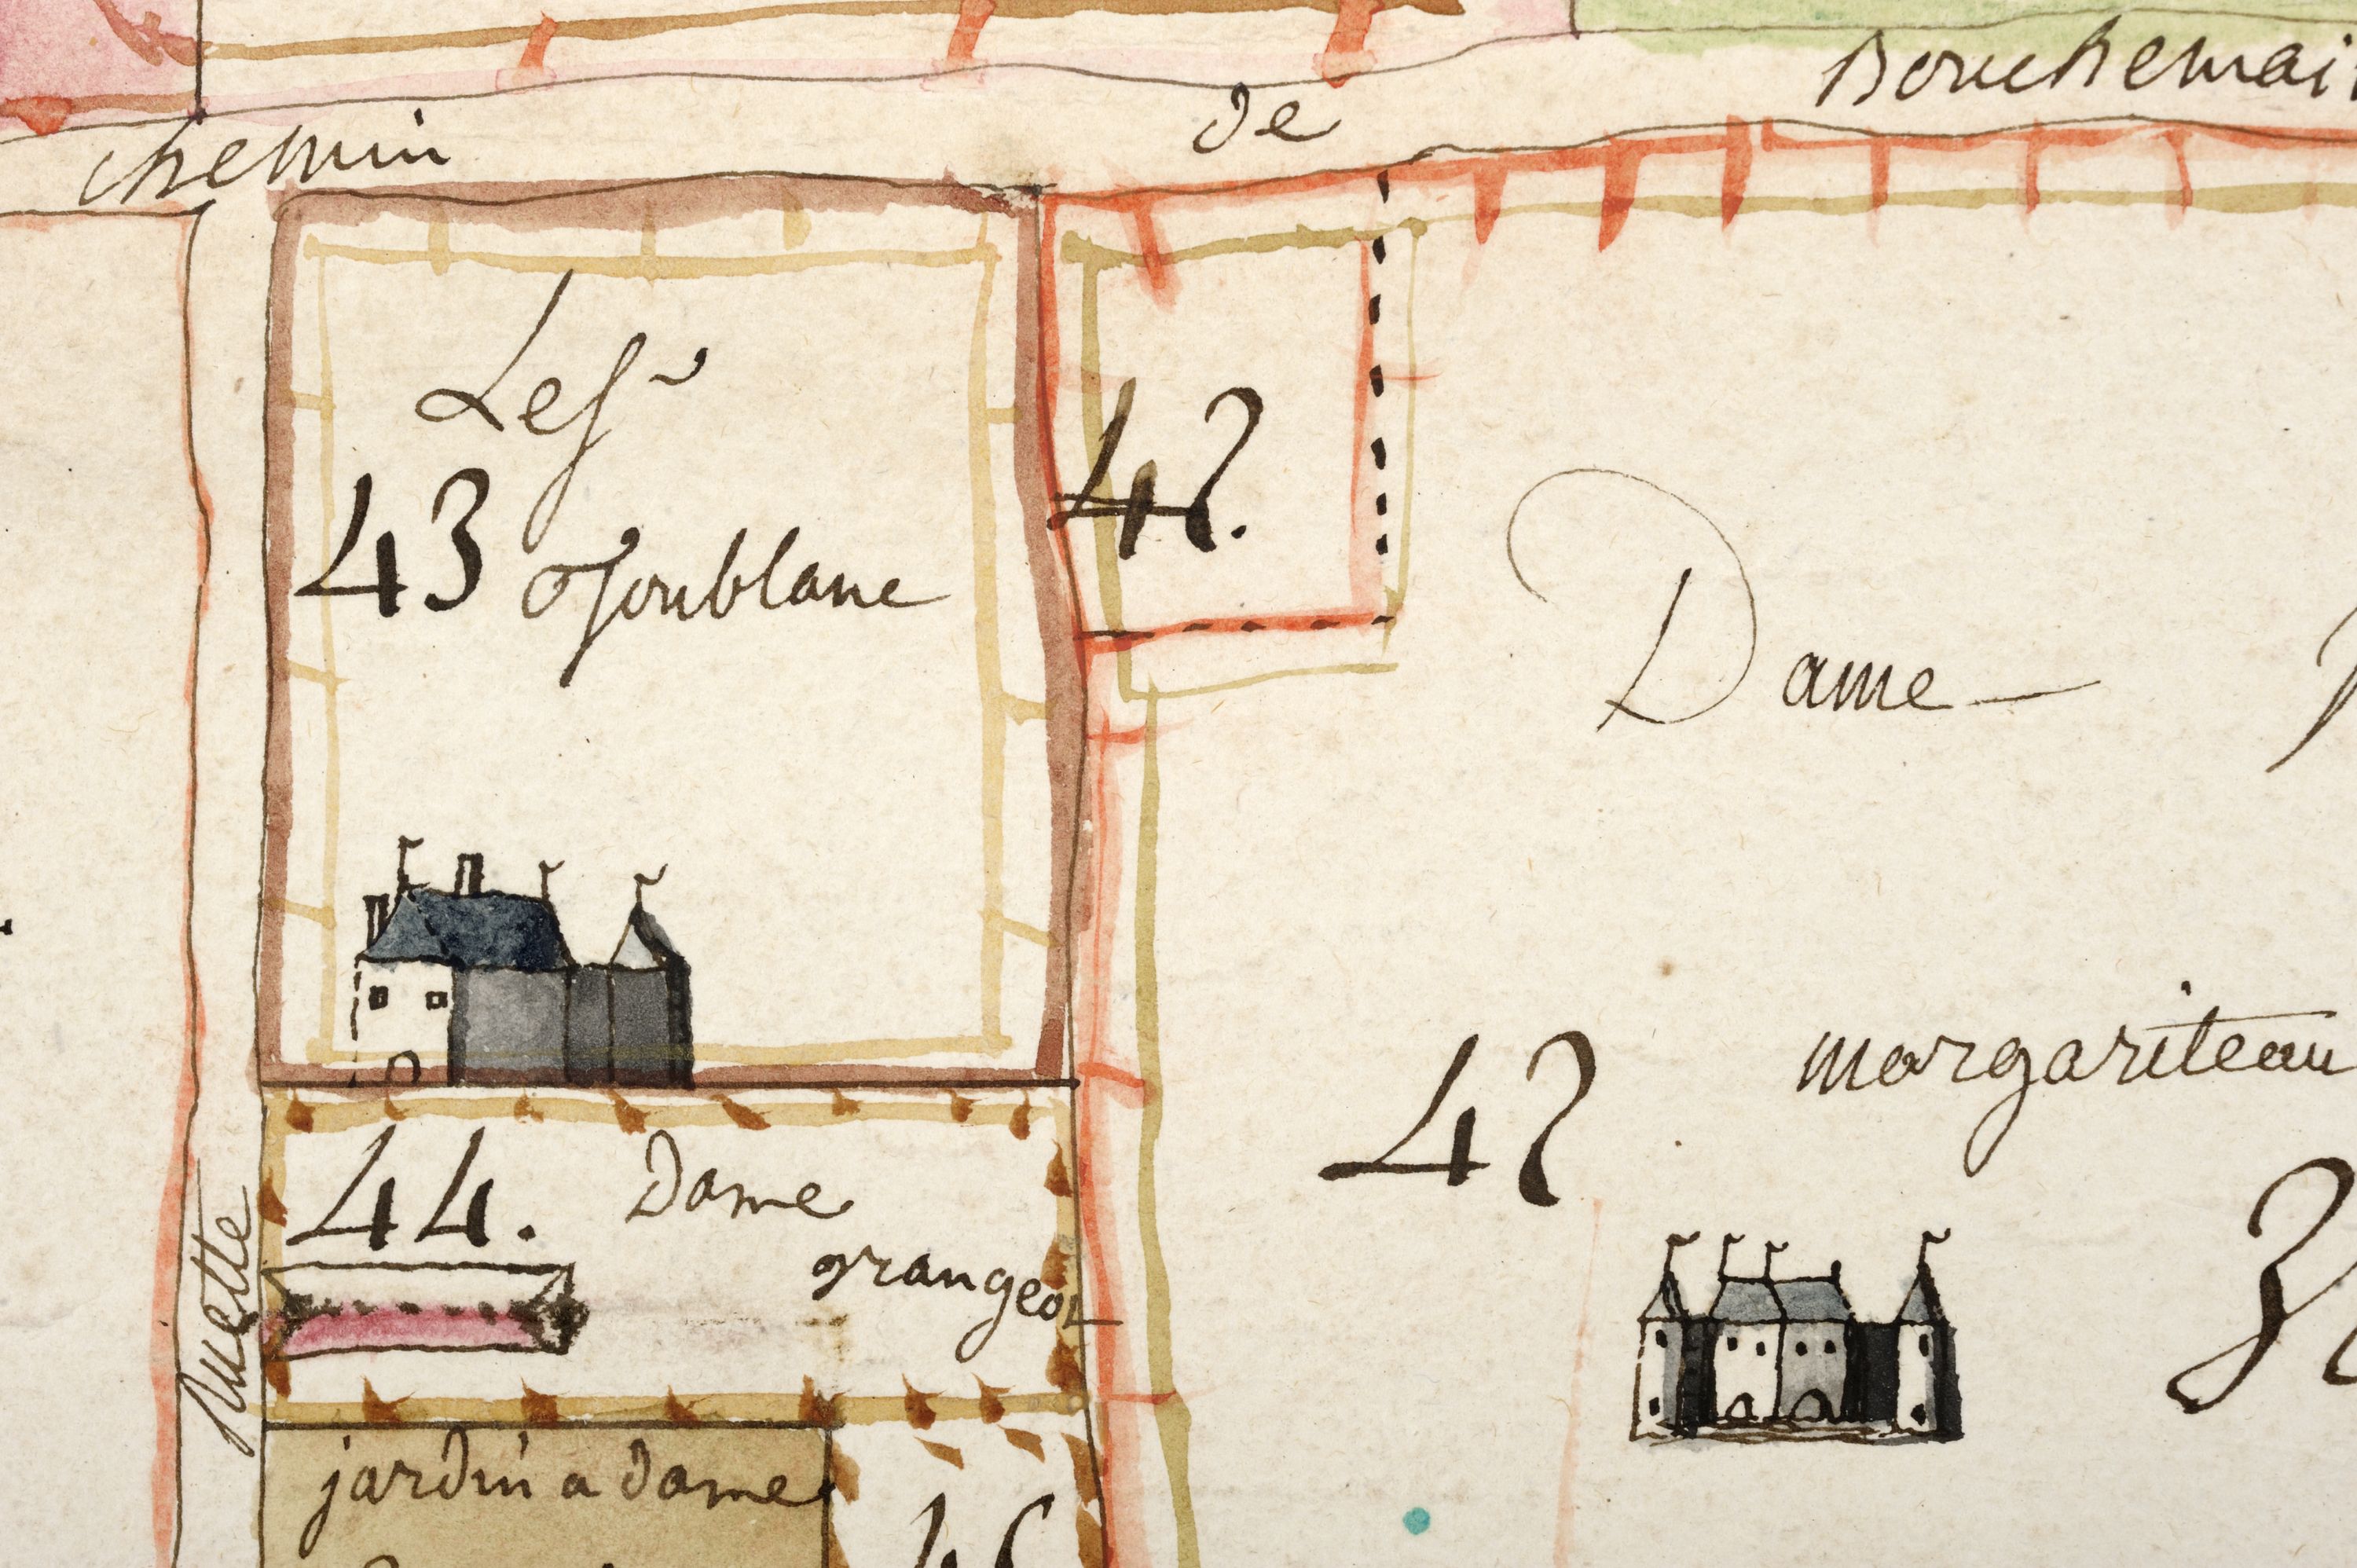 chemin de Bouchemai
Les
43
Joublanc
42.
Dame
42
margariteau
44.
Dame
grangeot
Ruette
jardin a dame